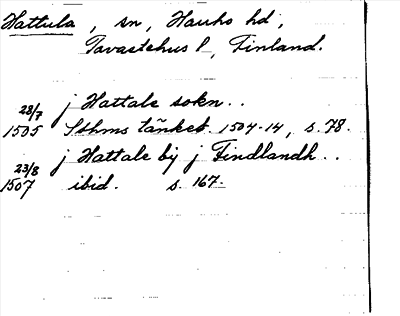 Hattula, sn, Hauho hd,
Tavastehus l, Finland.
28/7 j Hattale sokn..
1505 Sthms tänkeb. 1504-14, s. 78.
23/8 j Hattale by j Findlandh..
1507 ibid. s. 167.